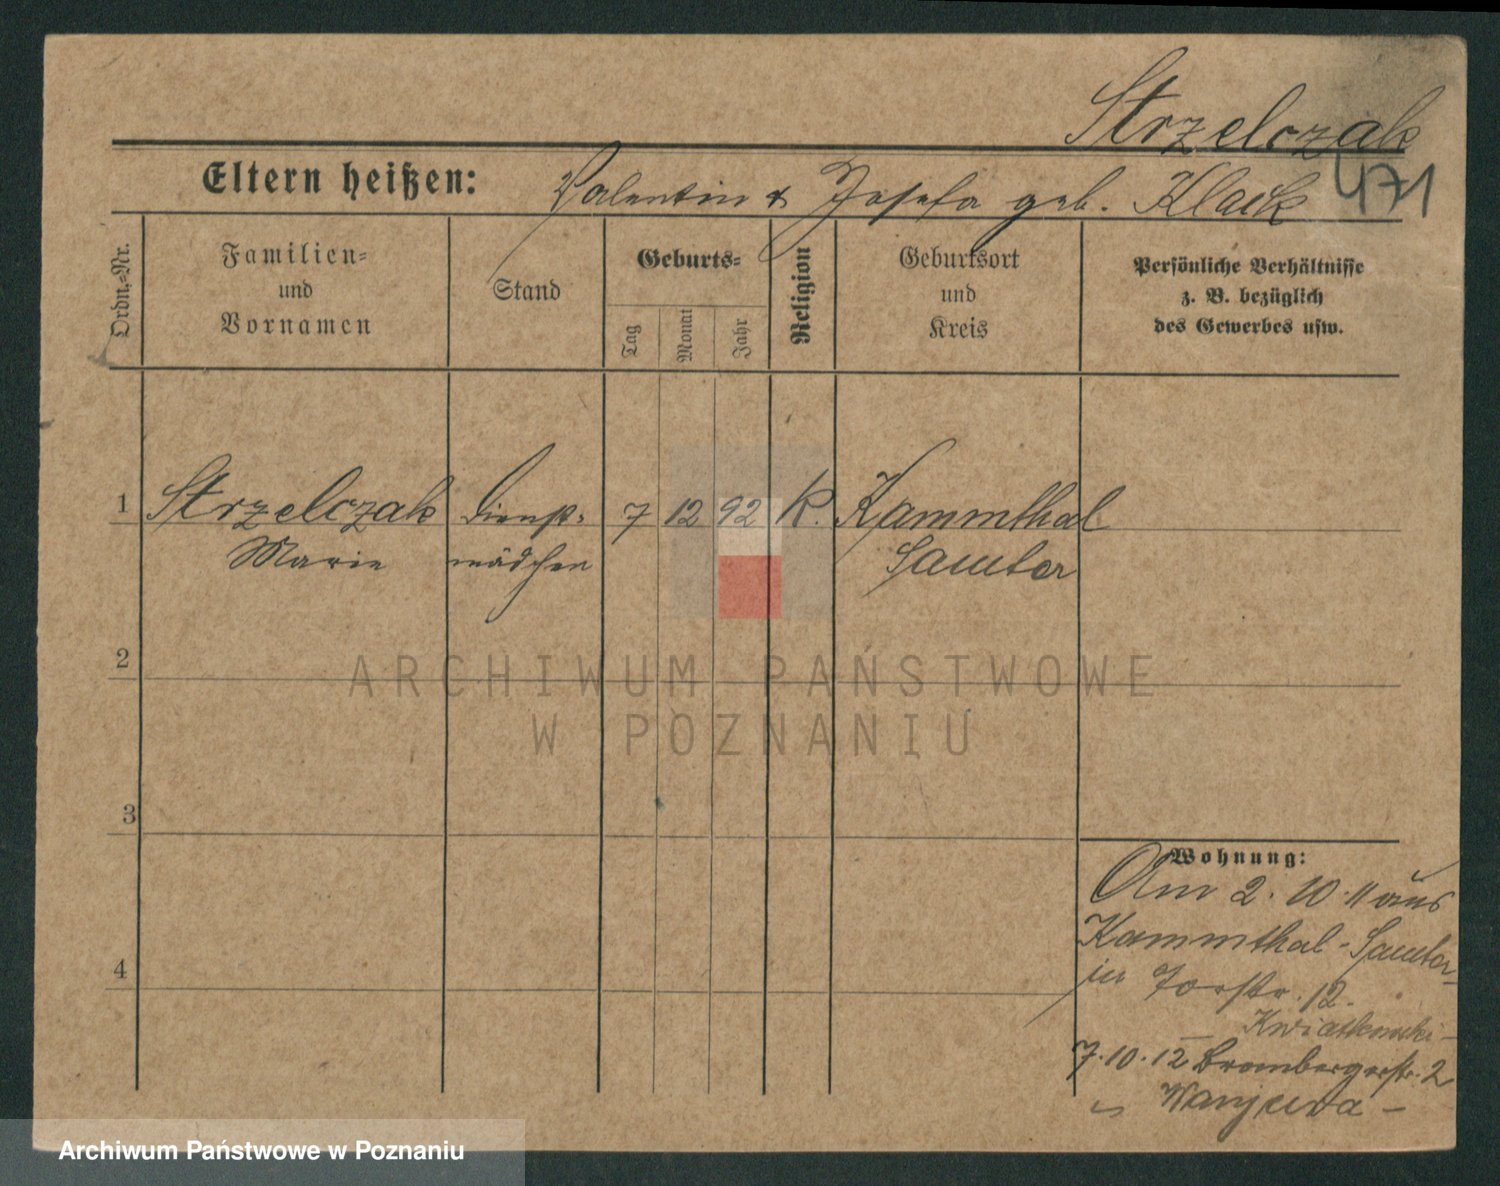 Strzelczak
471
Eltern heißen: Valentin & Josefa geb. Klack
Ordn.-Nr.
Familien-
und
Vornamen
Stand
Geburts-
Tag
Monat
Jahr
Religion
Geburtsort
und
Kreis
Persönliche Verhältnisse
z. B. bezüglich
des Gewerbes usw.
1 Strzelczak Dienst- 7 12 92 K. Kammthal
Marie mädchen Samter
2
3
4
Wohnung:
Am 2. 10. 11 aus
Kammthal - Samter
in Torstr. 12.
Kwiatkowski -
7. 10. 12 Brombergerstr. 2
ARCHIWUM PAŃSTWOWE
W POZNANIU
Archiwum Państwowe w Poznaniu